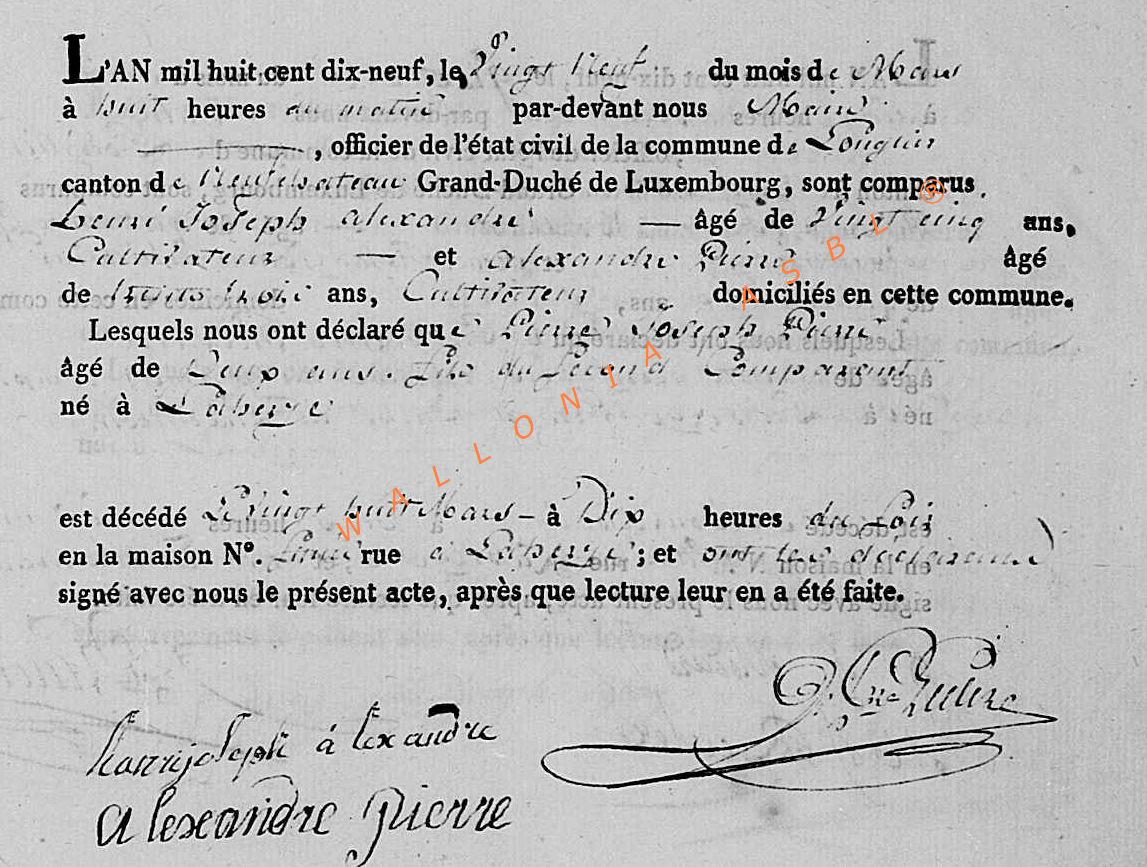 L'AN mil huit cent dix-neuf, le Vingt Neuf du mois de Mars
à huit heures du matin par-devant nous Maire
, officier de l'état civil de la commune de Longlier
canton de Neufchateau Grand-Duché de Luxembourg, sont comparus
henri Joseph alexandre — âgé de Vingt cinq ans,
Cultivateur — et alexandre Pierre âgé
de trente trois ans, Cultivateur domiciliés en cette commune.
Lesquels nous ont déclaré que Pierre Joseph Pierre
âgé de Deux ans. fils du Second Comparant
né à Laherie
est décédé Le vingt huit Mars - à Dix heures du Soir
en la maison N°. rue à Laherie ; et ont les
signé avec nous le présent acte, après que lecture leur en a été faite.
hanrijoseph á lexandre
alexeandre pierre
WALLONIA ASBL ®